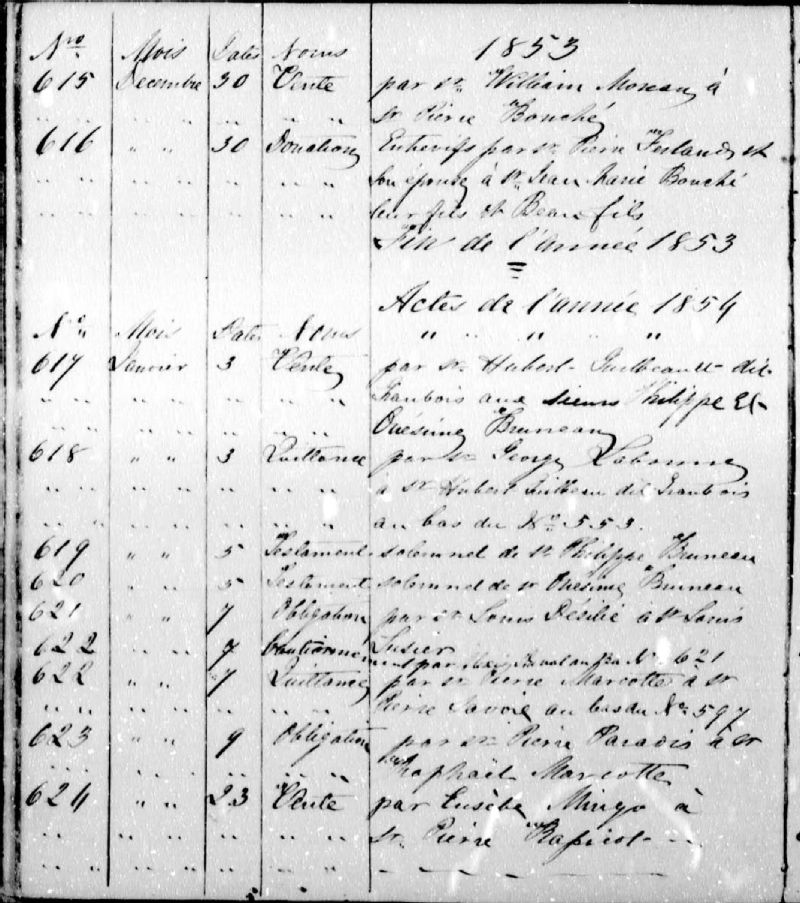 Nro Mois Dates Noms 1853
615 Decembre 30 Vente par sr. William Moreau à
" " " " " " " sr Pierre Bouché
616 " " 30 Donation Entrevifs par sr. Pierre Ferland et
" " " " " " " Son épouse à sr. Jean Marie Bouché
" " " " " " " leur fils et Beau fils
Fin de l'année 1853
Actes de l'année 1854
No. Mois Dates Noms " " " " "
617 Janvier 3 Vente par sr. Hubert Guilbeault dit
" " " " " " " Grandbois aux sieurs Philippe Et
" " " " " " " Onésime Bruneau
618 " " 3 Quittance par sr George Labonne
" " " " " " " à sr Hubert dit
" " " " " " " au bas du No. 553.
619 " " 5 Testament solemnel de sr Philippe Bruneau
620 " " 5 Testament solemnel de sr Onésime Bruneau
621 " " 7 Obligation par sr Louis à sr Louis
Lusier
622 " " 7 Cautionnement par au Bas No. 621
622 " " 7 Quittance par sr Pierre Marcotte à sr
" " " " " " " Pierre Savoie au bas du No 597
623 " " 9 Obligation par sr Pierre Paradis à sr
" " " " " " Raphaël Marcotte
624 " " 23 Vente par Eusèbe Mingo à
" " " " " " " sr. Pierre
" " " " " " " – – – – –